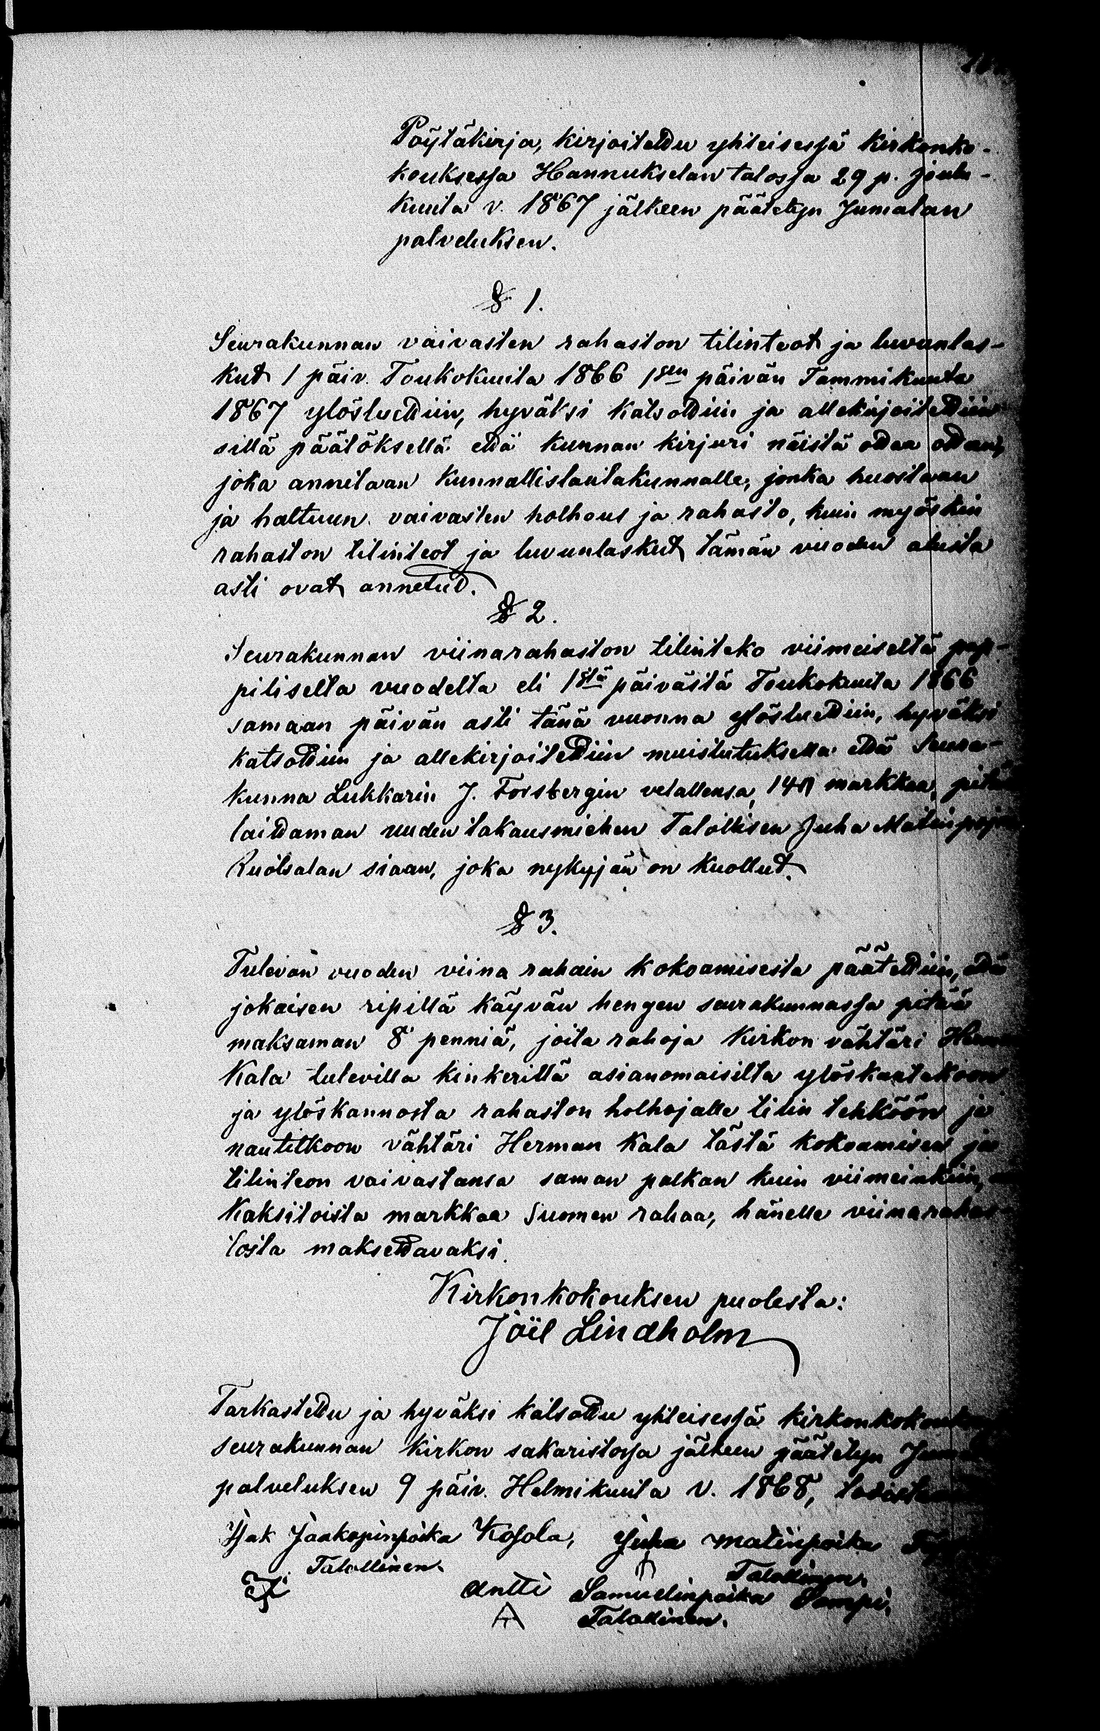 Pöytäkirja, kirjoitettu yhteisessä kirkonko-
kouksessa Hannukselan talossa 29 p. joulu-
kuuta v. 1867 jälkeen päätetyn Jumalan
palveluksen.
§ 1.
Seurakunnan vaivasten rahaston tilinteot ja luvunlas-
kut 1 päiv. Toukokuuta 1866 1sen päivän Tammikuuta
1867 ylösluettiin, hyväksi katsottiin ja allekirjoitettiin
sillä päätöksellä että kunnan kirjuri näistä ottaa
joka annetaan kunnallislautakunnalle, jonka huostaan
ja haltuun vaivasten holhous ja rahasto, kuin myöskin
rahaston tilinteot ja luvunlaskut tämän vuoden alusta
asti ovat annetut.
§ 2.
Seurakunnan viinarahaston tilinteko viimeiseltä pap-
piliselta vuodelta eli 1stä päivästä Toukokuuta 1866
samaan päivän asti tänä vuonna ylösluettiin, hyväksi
katsottiin ja allekirjoitettiin muistutuksella että Seura-
kunna Lukkarin J. Forsbergin velallensa, markkaa, pitää
laittaman uuden takausmiehen Talollisen Juha Matinpojan
Ruotsalan siaan, joka nykyjän on kuollut.
§ 3.
Tulevan vuoden viina rahain kokoamisesta päätettiin, että
jokaisen ripillä käyvän hengen seurakunnassa pitää
maksaman 8 penniä, joita rahoja kirkon vähtäri Herman
Kala tulevilla kinkerillä asianomaisilta ylöskantakoon
ja ylöskannosta rahaston holhojalle tilin tehköön ja
nautitkoon vähtäri Herman Kala tästä kokoamisen ja
tilinteon vaivastansa saman palkan kuin viimeinkin,
kaksitoista markkaa Suomen rahaa, hänelle viinarahas-
tosta maksettavaksi.
Kirkonkokouksen puolesta:
Joël Lindholm
Tarkastettu ja hyväksi katsottu yhteisessä kirkonkokouksessa
seurakunnan kirkon sakaristossa jälkeen päätetyn Jumalan
palveluksen 9 päiv. Helmikuuta v. 1868, todistamme
Isak Jaakopinpoika Kosola, Juha Matinpoika
Talollinen. Talollinen.
Antti Samuelinpoika Sampi,
Talollinen.